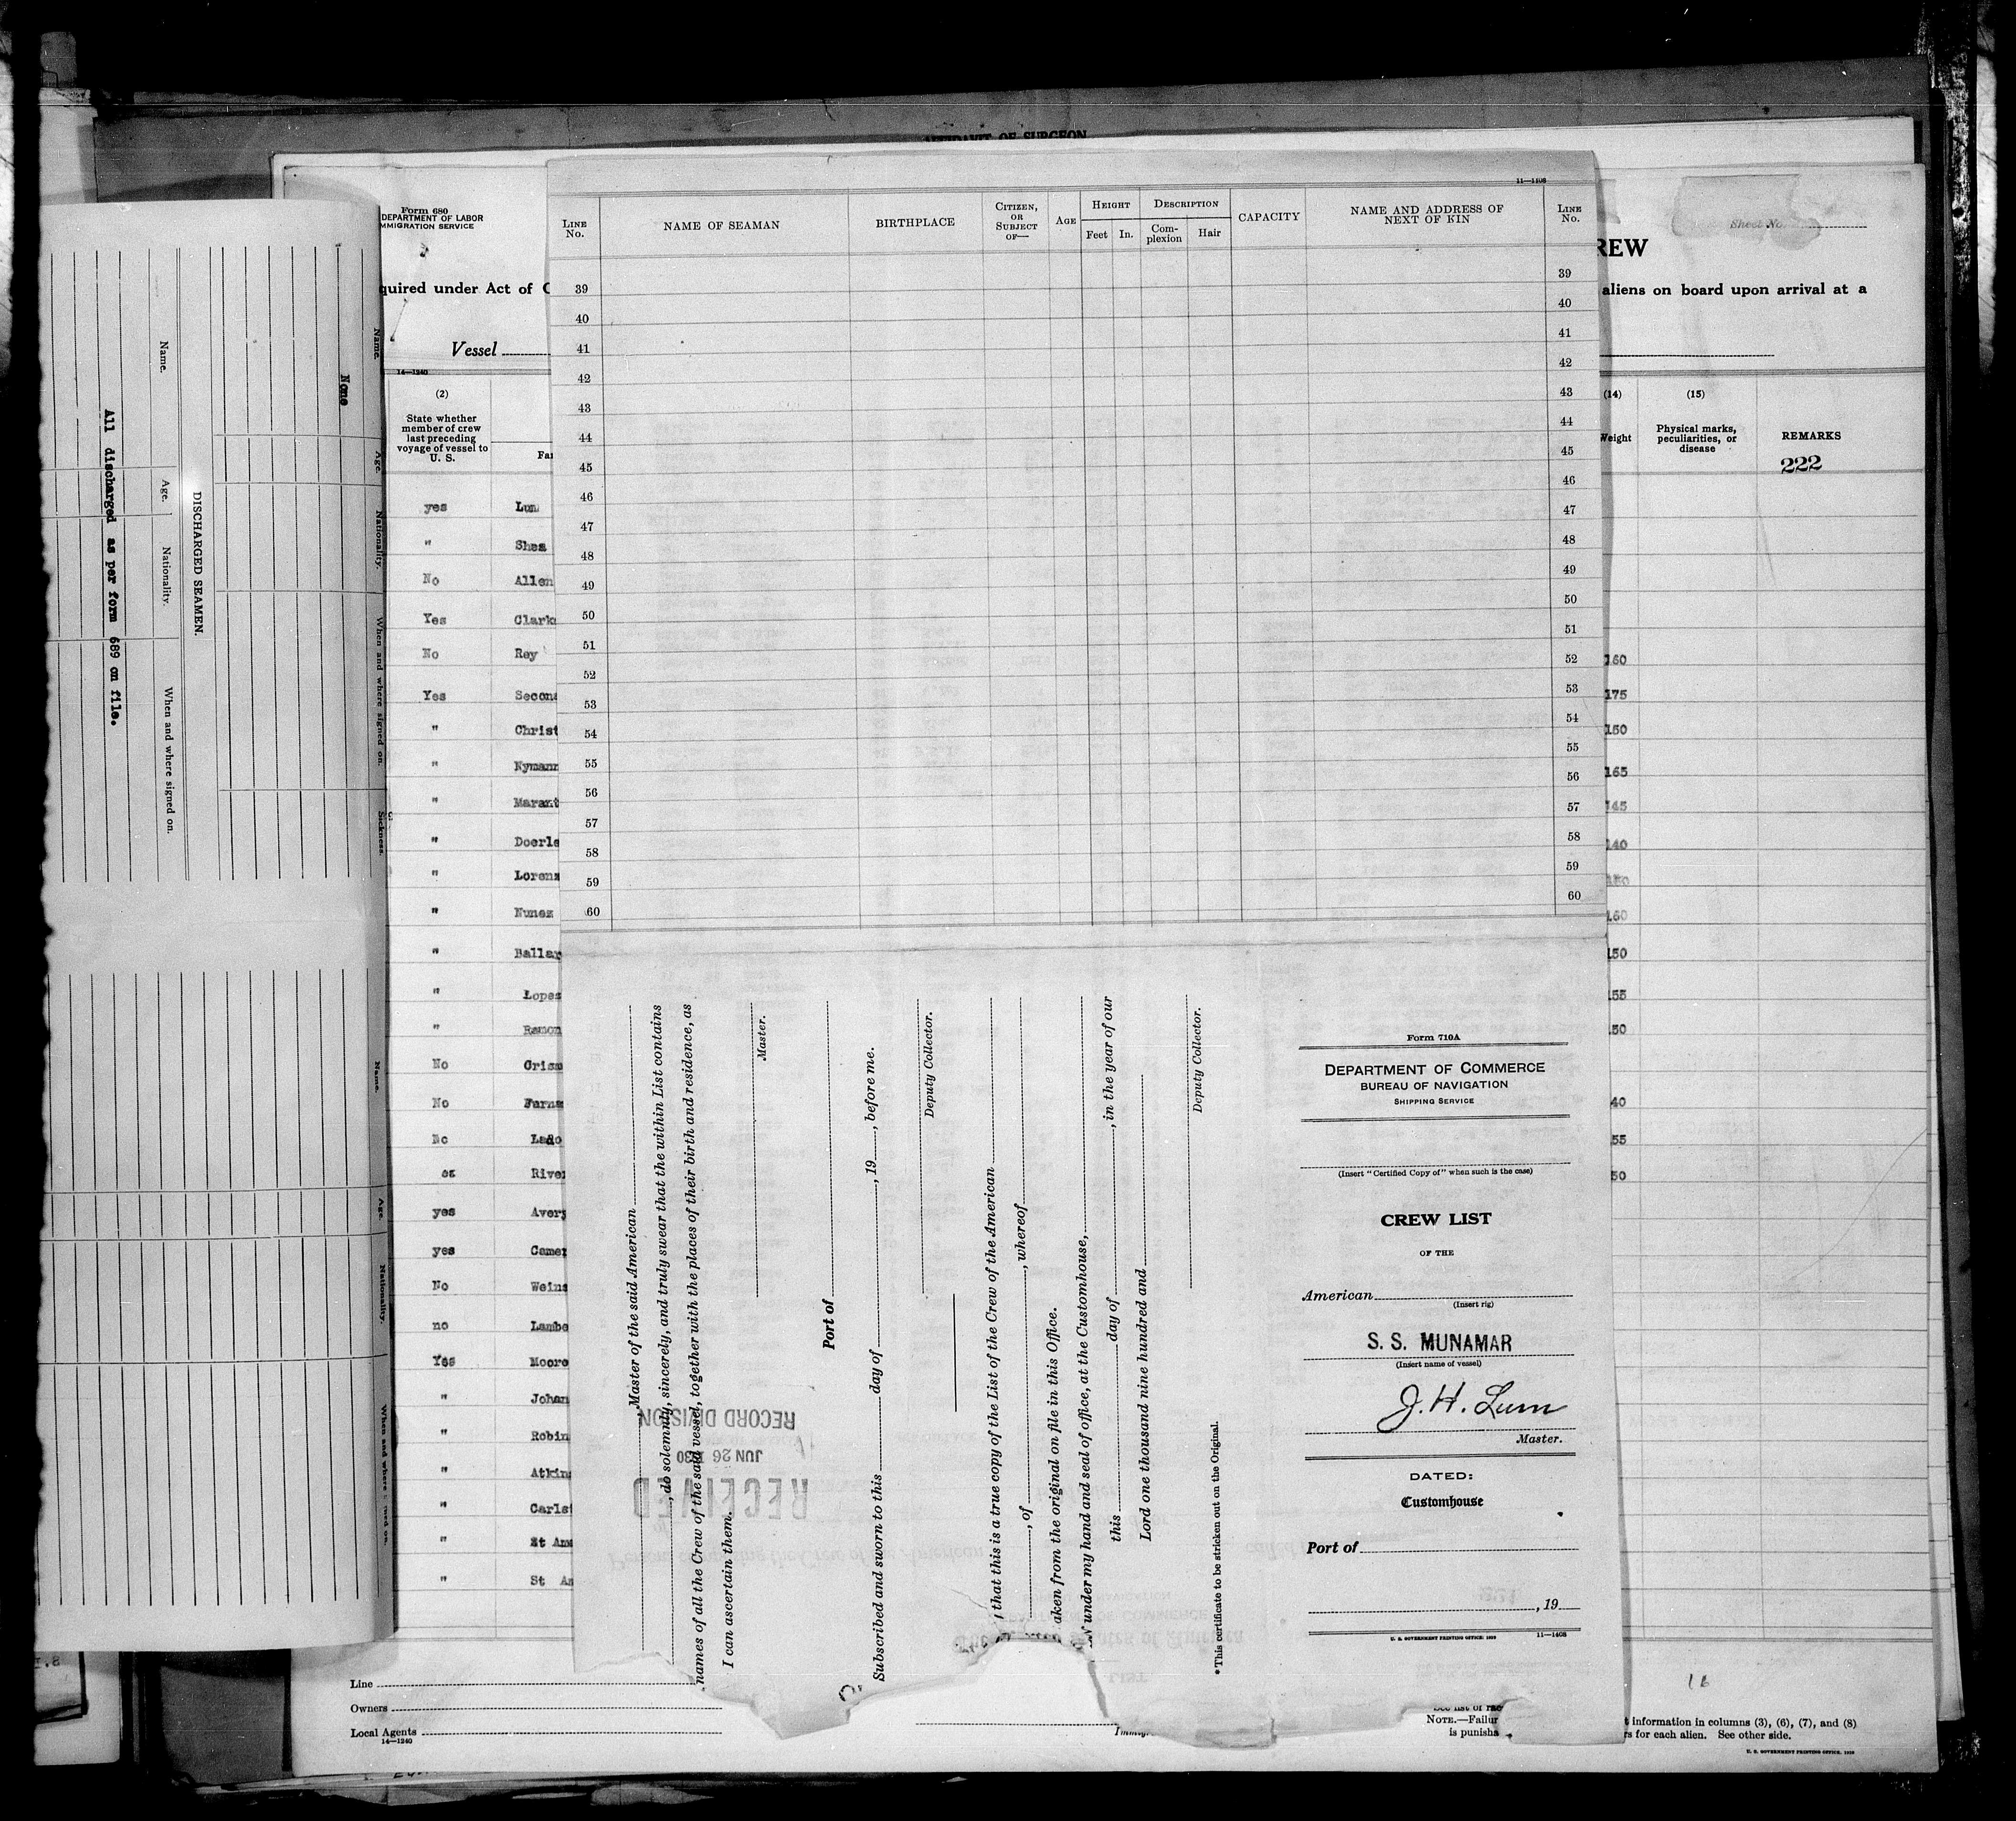 AFFIDAVIT OF SURGEON
Form 680
DEPARTMENT OF LABOR
IMMIGRATION SERVICE
quired under Act of C
Vessel
14—1240
(2)
State whether
member of crew
last preceding
voyage of vessel to
U. S.
yes
" Shea
No Allen
Yes
No Rey
Yes
"
"
"
"
"
" Nunez
"
" Lopez
" Ramon
No
No
No
yes
yes
No
no
Yes Moore
"
"
"
"
"
" St
Line
Owners
Local Agents
14—1240
Name.
Age.
Nationality.
When and where signed on.
Sickness.
None
DISCHARGED SEAMEN.
Name.
Age.
Nationality.
When and where signed on.
All discharged as per form 689 on file.
Name.
Age.
Nationality.
11—1408
LINE No.
NAME OF SEAMAN
BIRTHPLACE
CITIZEN, OR SUBJECT OF—
AGE
HEIGHT
Feet In.
DESCRIPTION
Com-plexion Hair
CAPACITY
NAME AND ADDRESS OF NEXT OF KIN
LINE No.
39 39
40 40
41 41
42 42
43 43
44 44
45 45
46 46
47 47
48 48
49 49
50 50
51 51
52 52
53 53
54 54
55 55
56 56
57 57
58 58
59 59
60 60
Master of the said American
, do solemnly, sincerely, and truly swear that the within List contains
names of all the Crew of the said vessel, together with the places of their birth and residence, as
I can ascertain them.
Master.
Port of
Subscribed and sworn to this day of , 19 , before me.
Deputy Collector.
, that this is a true copy of the List of the Crew of the American
, of , whereof
aken from the original on file in this Office.
under my hand and seal of office, at the Customhouse,
this day of , in the year of our
Lord one thousand nine hundred and
Deputy Collector.
*This certificate to be stricken out on the Original.
RECEIVED
JUN 26 1930
RECORD DIVISION
Form 710A
DEPARTMENT OF COMMERCE
BUREAU OF NAVIGATION
SHIPPING SERVICE
(Insert "Certified Copy of" when such is the case)
CREW LIST
OF THE
American
(Insert rig)
S. S. MUNAMAR
(Insert name of vessel)
J. H. Lum
Master.
DATED:
Customhouse
Port of
, 19
U. S. GOVERNMENT PRINTING OFFICE: 1929 11—1408
Sheet No.
REW
aliens on board upon arrival at a
(14) (15)
Weight
Physical marks,
peculiarities, or
disease
REMARKS
222
160
175
150
165
145
140
160
150
55
50
40
55
50
16
NOTE.—Failur
is punisha
t information in columns (3), (6), (7), and (8)
rs for each alien. See other side.
U. S. GOVERNMENT PRINTING OFFICE: 1929